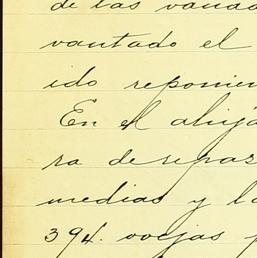 de las
vantado el
ido reponien
En el ahijá
ra de repas
medias y la
394. ovejas p